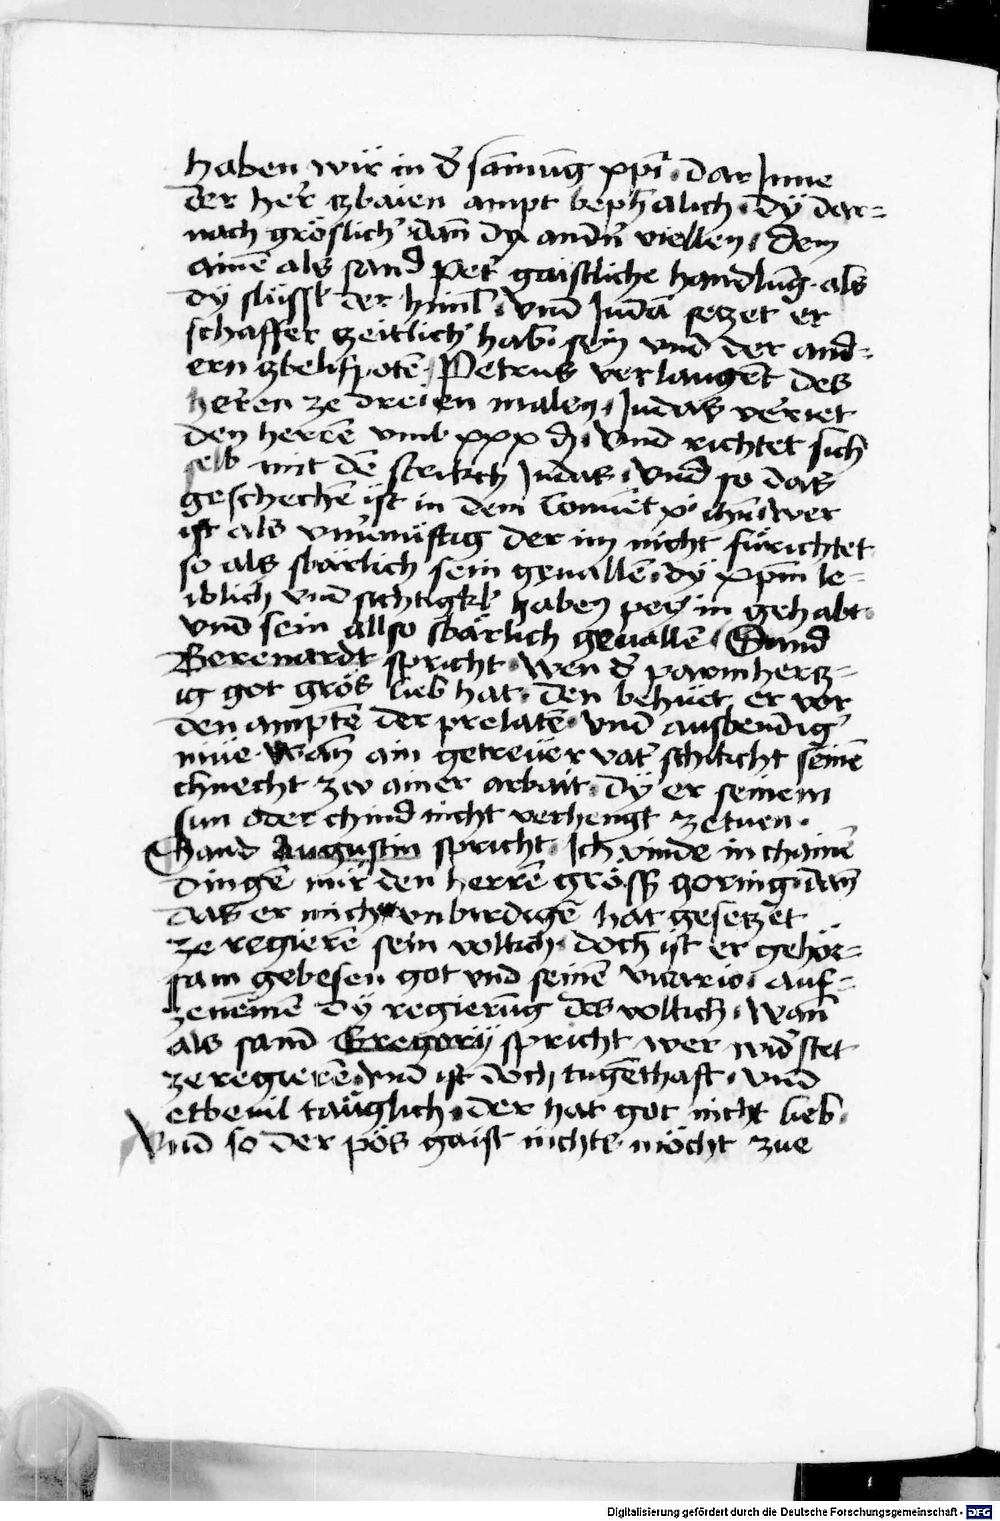 haben wir in d̕ samūg xpi · dar Inne
der her̕ zbaien ampt bephalich · dÿ dar=
nach gröslich̕ dan̄ dy andn̄ viellen · dem
ainē als sand pet̕ gaistliche handlūg · als
dÿ slüssl der himl · Vnd Judā setzet er
schaffer zeitlich̕ hab · sein vnd der and=
ern zbelifpotē · Petrus verlaugēt des
herren ze dreien malen · Judas verriet
den herrē vmb xxx d · Vnd richtet sich
selb mit dē strikch Judas · Vnd so das
geschechē ist in dem Conuēt xi ihū · wer
ist als vn̄ermüftig der im nicht fürichtet
so als sbärlich sein geuallē · dÿ xpm le=
iblich vnd sichtigkl̕ haben pey in gehabt ·
vnd sein allso sbärlich geuallē · Sand
Berenardt spricht · Wen d̕ parmhertz=
ig got grös lieb hat · den behüet er vor
den amptē der prelatē · vnd ausbendig̕
müe · Wan̄ ain getreüer vat̕ schikcht seinē
chnecht zw ainer arbait · dÿ er seinem
sun oder chind nicht verhengt zetuen ·
Sand Augustin spricht · Ich vinde in chainē
dingē mir den herrē gröss̕ zorning · dan̄
das er mich vnbirdigē hat gesetzet
ze regierē sein volkch · doch ist er gehör=
sam gebesen got vnd seinē vicario · auf=
zenēmē dÿ regierūg des volkch · Wan̄
als sand Gregorÿ spricht wer wid̕stet
ze regierē · vnd ist doch tugēthaft · vnd
etbeuil taüglich · der hat got nicht lieb ·
Vnd so der pös gaist nichts möcht zue
Digitalisierung gefördert durch die Deutsche Forschungsgemeinschaft - DFG